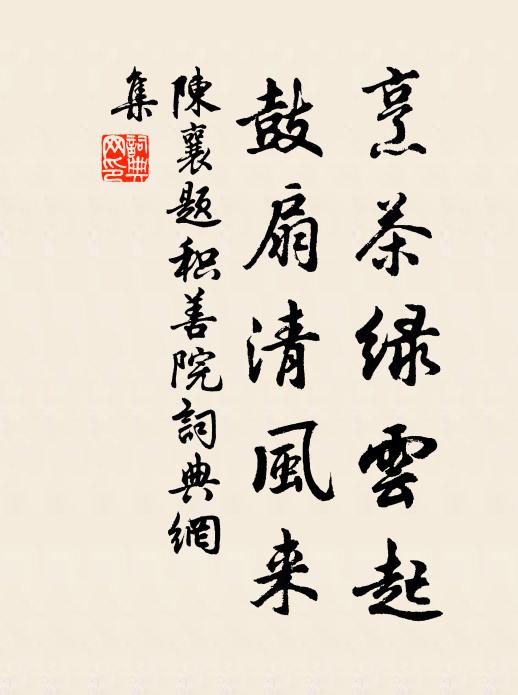 烹茶绿雲起
鼓扇清風来
陳襄题积善院詞典網
集
詞典
网印